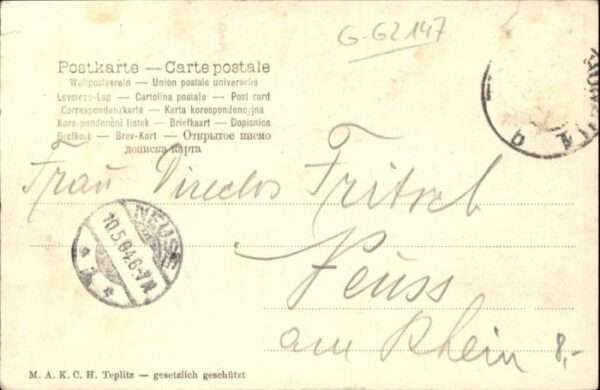 G-G2147
Postkarte — Carte postale
Weltpostverein — Union postale universelle
Levelezö-Lap — Cartolina postale — Post card
Correspondenzkarte — Karta korespondencyjna
Korespondenční lístek — Briefkaart — Dopisnica
Brefkort — Brev-Kort — Открытое письмо
дописна карта
Frau Director Fritsch
NEUSS
10.5.04.6-7N.
Neuss
am Rhein
8,-
M. A. K. C. H. Teplitz — gesetzlich geschützt